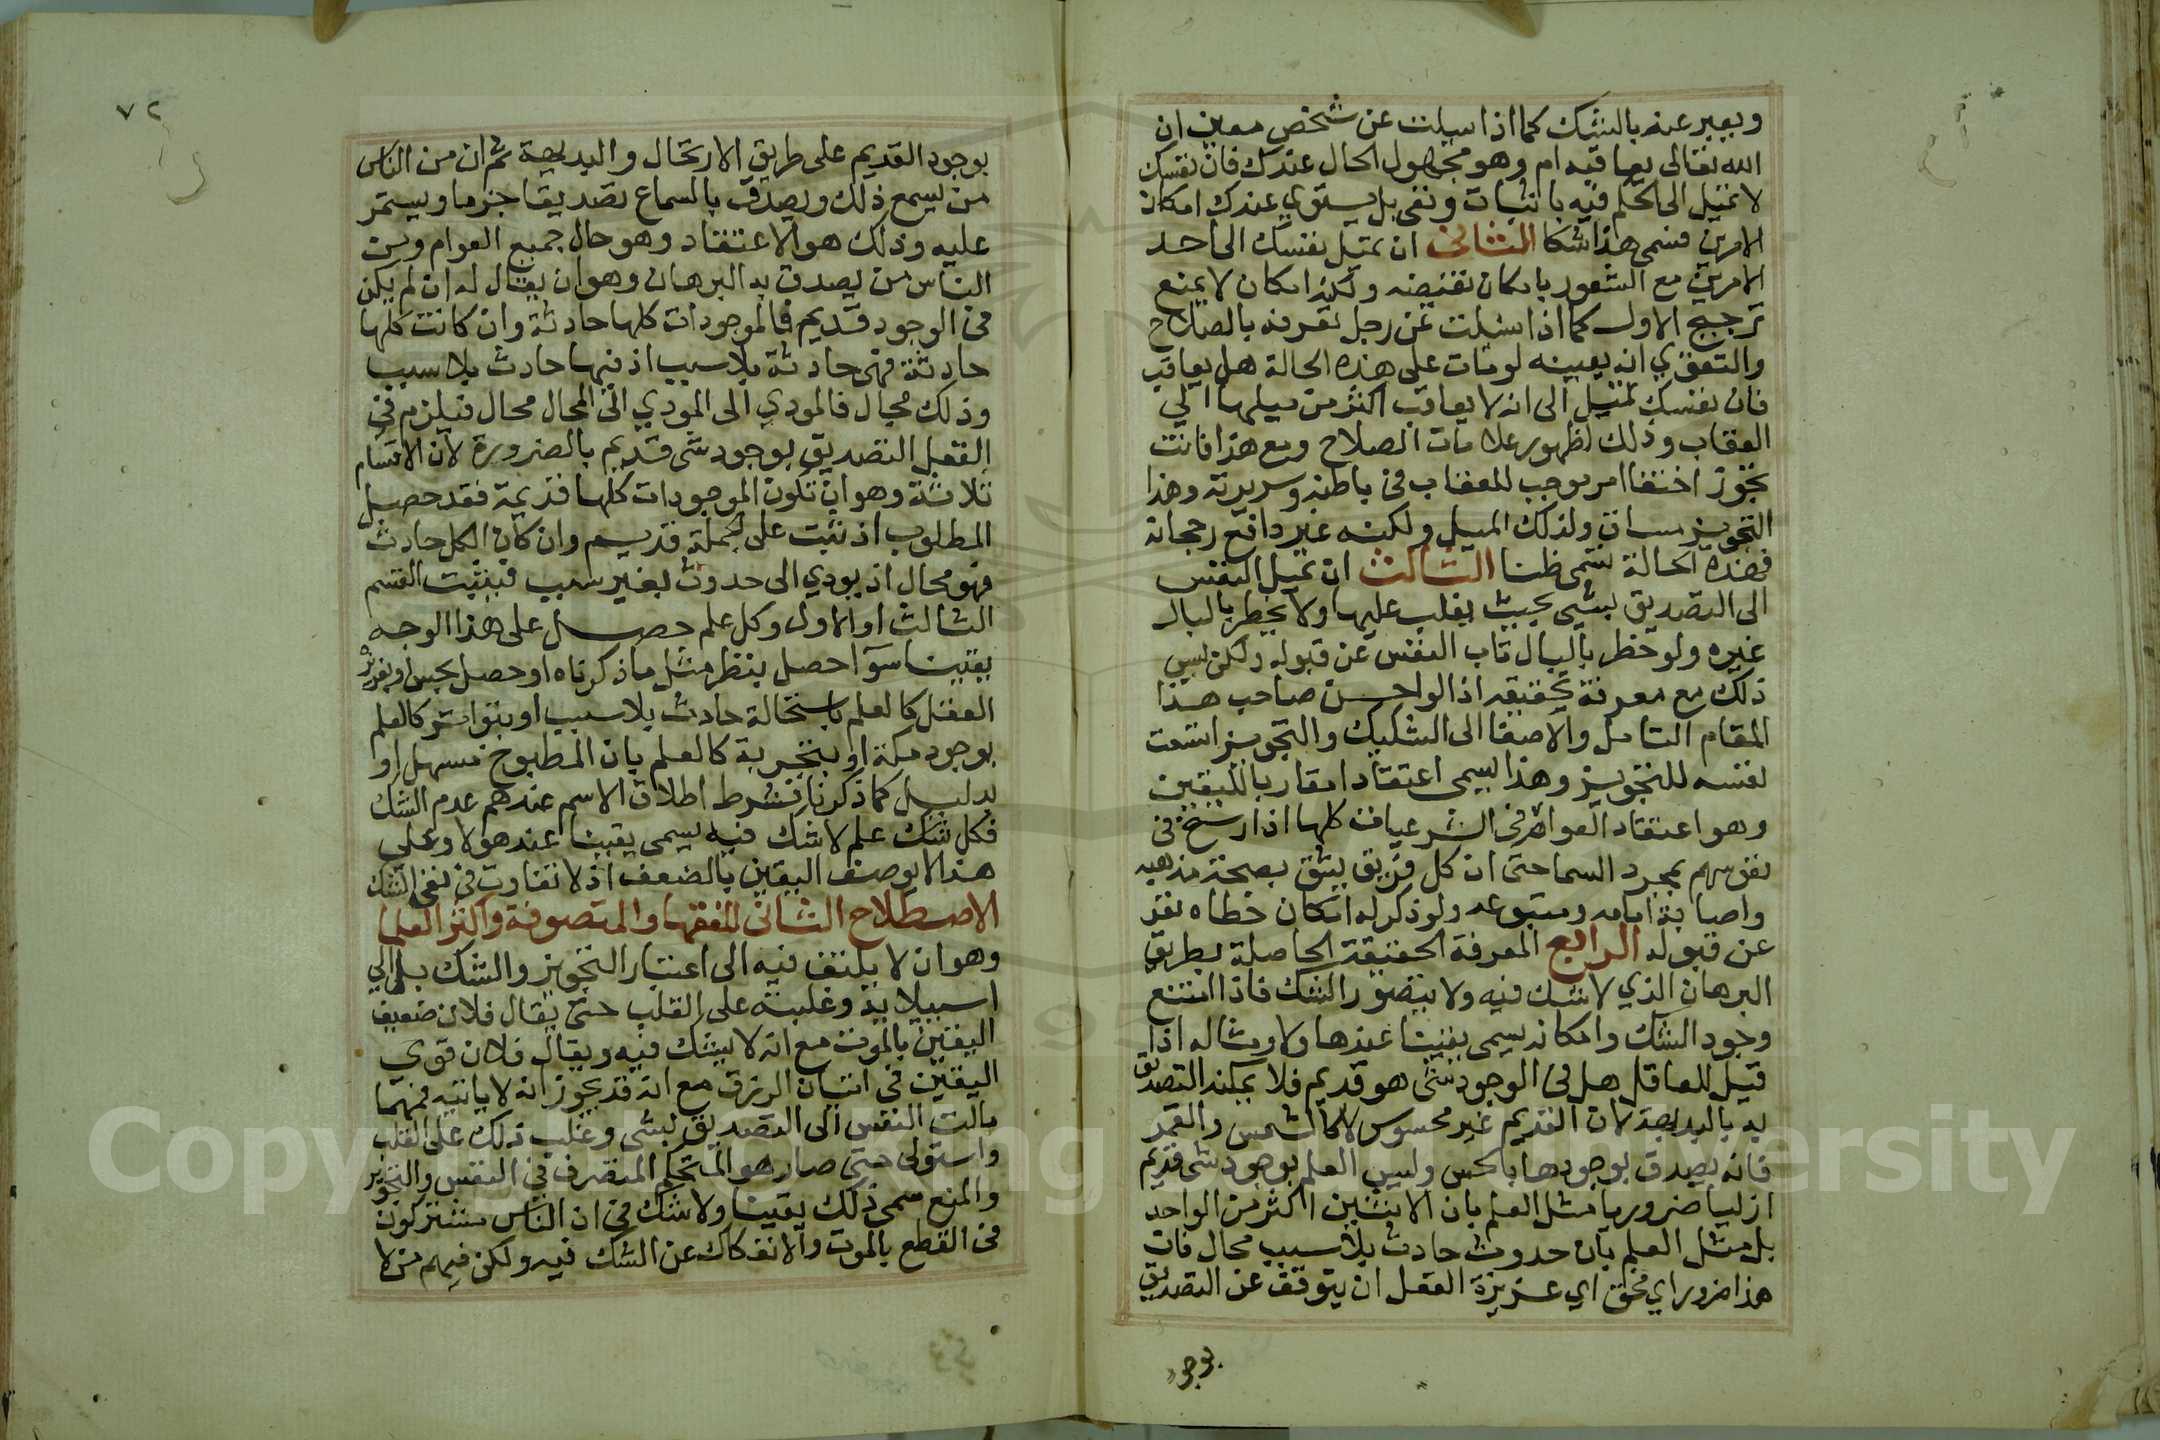 ويعبر عنه بالشك كما اذا سيلت عن شخص معين ان
الله تعالى يعاقبه ام وهو مجهول الحال عندك فان نفسك
لا تميل الى الحكم فيه باثبات ونفي بل يستوي عندك امكان
الامرين فسمى هذا شكا الثانى ان تميل نفسك الى احد
الامرين مع الشعور بامكان نقيضه ولكنه امكان لا يمنع
ترجيح الاول كما اذا سئلت عن رجل تعرفه بالصلاح
والتقوي انه بعينه لو مات على هذه الحالة هل يعاقب
فان نفسك تميل الى انه لا يعاقب اكثر من ميلها الي
العقاب وذلك لظهور علامات الصلاح ومع هذا فانت
تجوز اختفا امر موجب للعقاب في باطنه وسريرته وهذا
التجويز مساق ولذلك الميل ولكنه غير دافع رجحانه
فهذه الحالة تسمى ظنا الثالث ان تميل النفس
الى التصديق لشي بحيث يغلب عليها ولا يخطر بالبال
غيره ولو خطر بالبال تاب النفس عن قبوله ولكن ليس
ذلك مع معرفة حقيقه اذ الواحسن صاحب هذا
المقام التامل والاصغا الى التشكيك والتجويز اتسعت
نفسه للتجويز وهذا يسمى اعتقادا مقاربا لليقين
وهو اعتقاد العوام في الشرعيات كلها اذا رسخ في
نفوسهم بمجرد السما حتى ان كل فريق يثق بصحة مذهبه
واصابة امامه ومتبوعه ولو ذكر له امكان خطاه نفر
عن قبوله الرابع المعرفة الحقيقة الحاصلة بطريق
البرهان الذي لا شك فيه ولا يتصور الشك فاذا امتنع
وجود الشك وامكانه يسمى يقينا عندها ولا ومثاله اذا
قيل للعاقل هل في الوجود شى هو قديم فلا يمكنه التصديق
به بالبديهة لان القديم غير محسوس لا كالشمس والقمر
فانه يصدق بوجودها بالحس وليس العلم بوجود شى قديم
ازليا ضروريا مثل العلم بان الاثنين اكثر من الواحد
بل مثل العلم بان حدوث حادث بلا سبب محال فان
هذا ضروراي فحق اي عزيزة العقل ان يتوقف عن التصديق
بوجود
٧٢
بوجود القديم على طريق الارتحال والبديهة ثم ان من الناس
من يسمع ذلك ويصدق بالسماع تصديقا جزما ويستمر
عليه وذلك هو الاعتقاد وهو حال جميع العوام ومن
الناس من يصدق به البرهان وهو ان يقال له ان لم يكن
فى الوجود قديم فالموجودات كلها حادثة وان كانت كلها
حادثة فهى حادثة بلا سبب اذ فيها حادث بلا سبب
وذلك محال فالمودي الى المودي الى المحال محال فيلزم في
العقل التصديق بوجود شى قديم بالضرورة لان الاقسام
ثلاثة وهو ان تكون الموجودات كلها قديمة فقد حصل
المطلوب اذ ثبت على الجملة قديم وان كان الكل حادث
فهو محال اذ يودي الى حدوث بغير سبب فيثبت القسم
الثالث او الاول وكل علم حصل على هذا الوجه
يقينا سوآ احصل ينظر مثل ما ذكرناه او حصل بحس او بغريزة
العقل كالعلم باستحالة حادث بلا سبب او بتواتر كالعلم
بوجود مكة او بتجربة كالعلم بان المطبوخ مسهل او
بدليل كما ذكرنا فشرط اطلاق الاسم عندهم عدم الشك
فكل شك علم لا شك فيه يسمى يقينا عند هولا وعلى
هذا لا يوصف اليقين بالضعف اذ لا تفاوت في نفي الشك
الاصطلاح الثانى للفقها والمتصوفة واكثر العلما
وهو ان لا يلتفت فيه الى اعتبار التجويز والشك بل الي
استيلايه وغلبته على القلب حتى يقال فلان ضعيف
اليقين بالموت مع انه لا يشك فيه ويقال فلان قوي
اليقين في اتيان الرزق مع انه قد يجوز انه لا ياتيه فمهما
مالت النفس الى التصديق لشى وغلب ذلك على القلب
واستولى حتى صار هو المتحكم المتصرف في النفس والتجويز
والمنع سمى ذلك يقينا ولا شك في ان الناس مشتركون
فى القطع بالموت والانفكاك عن الشك فيه ولكن فيهم من لا